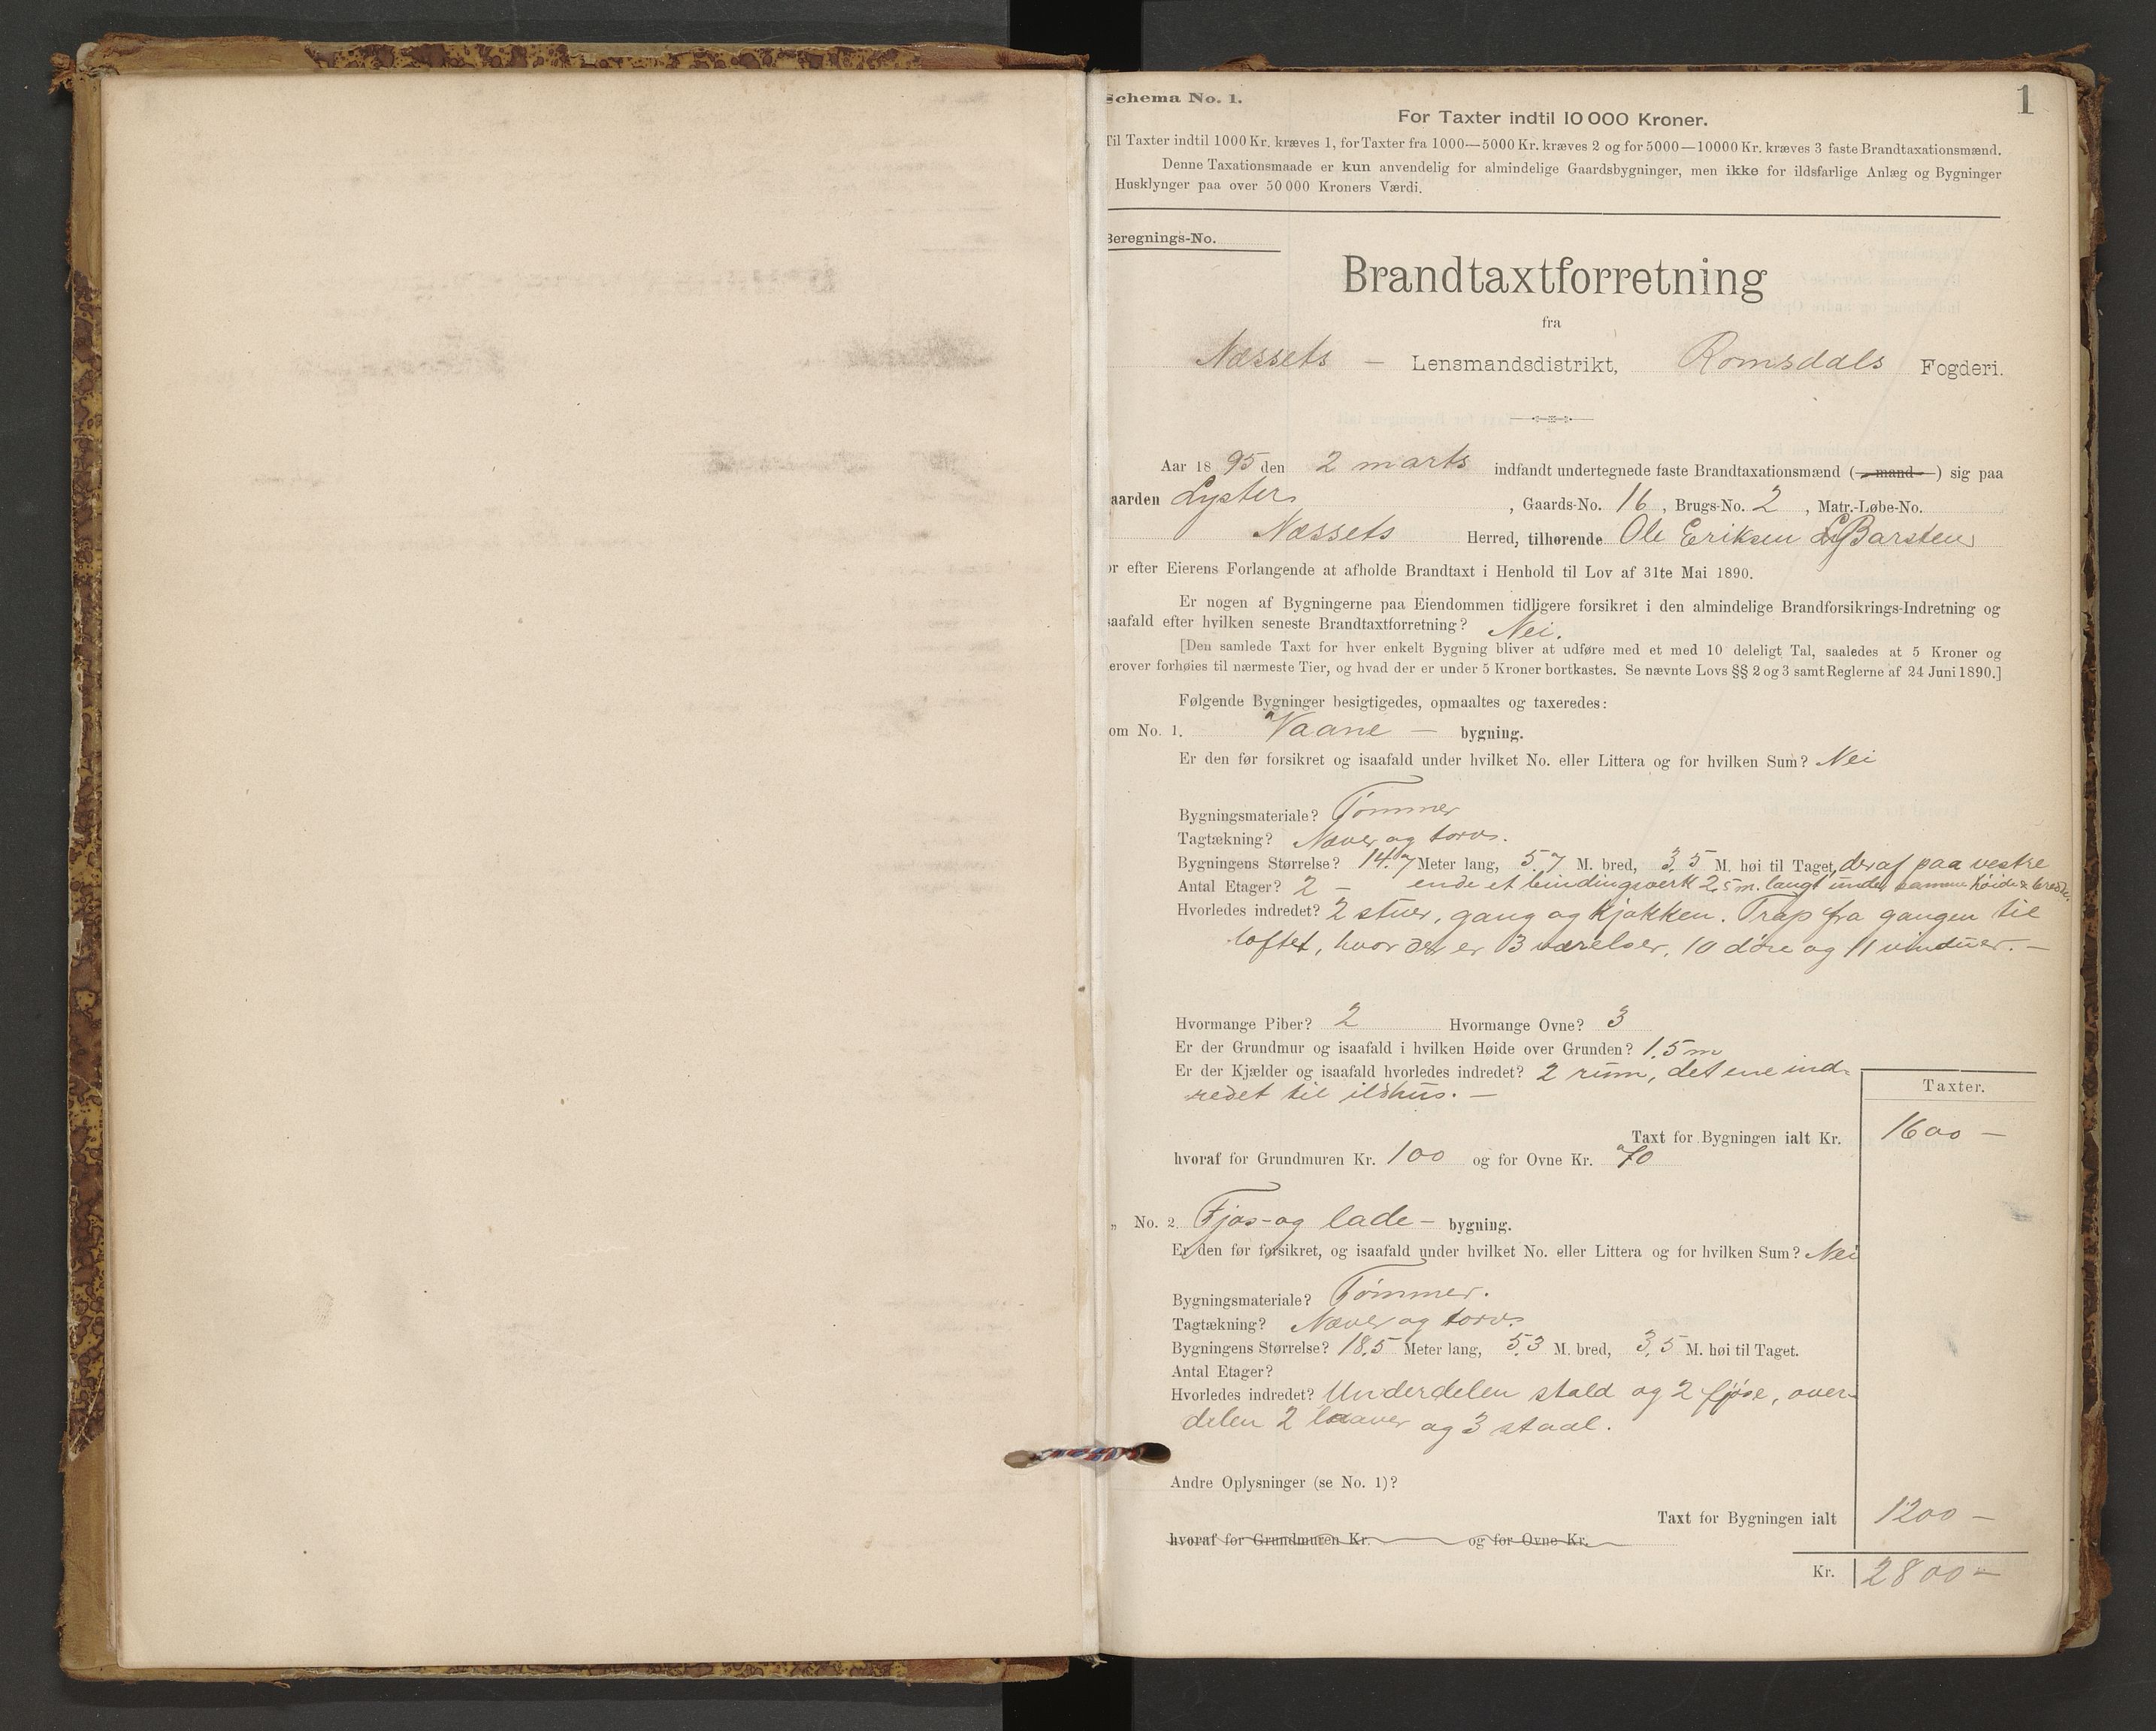 1
Schema No. 1.
For Taxter indtil 10 000 Kroner.
Til Taxter indtil 1000 Kr. kræves 1, for Taxter fra 1000—5000 Kr. kræves 2 og for 5000—10000 Kr. kræves 3 faste Brandtaxationsmænd.
Denne Taxationsmaade er kun anvendelig for almindelige Gaardsbygninger, men ikke for ildsfarlige Anlæg og Bygninger
Husklynger paa over 50 000 Kroners Værdi.
Beregnings-No.
Brandtaxtforretning
fra
Næssets — Lensmandsdistrikt, Romsdals Fogderi.
Aar 1895 den 2 marts indfandt undertegnede faste Brandtaxationsmænd (mand) sig paa
aarden Lyster, Gaards-No. 16, Brugs-No. 2, Matr.-Løbe-No.
Næssets Herred, tilhørende Ole Eriksen Barsten
or efter Eierens Forlangende at afholde Brandtaxt i Henhold til Lov af 31te Mai 1890.
Er nogen af Bygningerne paa Eiendommen tidligere forsikret i den almindelige Brandforsikrings-Indretning og
saafald efter hvilken seneste Brandtaxtforretning? Nei.
[Den samlede Taxt for hver enkelt Bygning bliver at udføre med et med 10 deleligt Tal, saaledes at 5 Kroner og
erover forhøies til nærmeste Tier, og hvad der er under 5 Kroner bortkastes. Se nævnte Lovs §§ 2 og 3 samt Reglerne af 24 Juni 1890.]
Følgende Bygninger besigtigedes, opmaaltes og taxeredes:
om No. 1. Vaane — bygning.
Er den før forsikret og isaafald under hvilket No. eller Littera og for hvilken Sum? Nei
Bygningsmateriale? Tømmer
Tagtækning? Næver og torv.
Bygningens Størrelse? 14.7 Meter lang, 5.7 M. bred, 3,5 M. høi til Taget, deraf paa vestre
Antal Etager? 2 — ende et bindingsverk 2,5 m. langt under samme høide & bredde.
Hvorledes indredet? 2 stuer, gang og kjøkken. Trap fra gangen til
loftet, hvor der er 3 værelser, 10 døre og 11 vinduer. —
Hvormange Piber? 2 Hvormange Ovne? 3
Er der Grundmur og isaafald i hvilken Høide over Grunden? 1,5 m
Er der Kjælder og isaafald hvorledes indredet? 2 rum, det ene ind-
redet til ildhus. —
Taxter.
Taxt for Bygningen ialt Kr. 1600 —
hvoraf for Grundmuren Kr. 100 og for Ovne Kr. 70
„ No. 2. Fjøs- og lade — bygning.
Er den før forsikret, og isaafald under hvilket No. eller Littera og for hvilken Sum? Nei
Bygningsmateriale? Tømmer.
Tagtækning? Næver og torv.
Bygningens Størrelse? 18,5 Meter lang, 5,3 M. bred, 3,5 M. høi til Taget.
Antal Etager?
Hvorledes indredet? Underdelen stald og 2 fjøse, over-
delen 2 laaver og 3 staal.
Andre Oplysninger (se No. 1)?
Taxt for Bygningen ialt 1200 —
hvoraf for Grundmuren Kr. og for Ovne Kr.
Kr. 2800 —